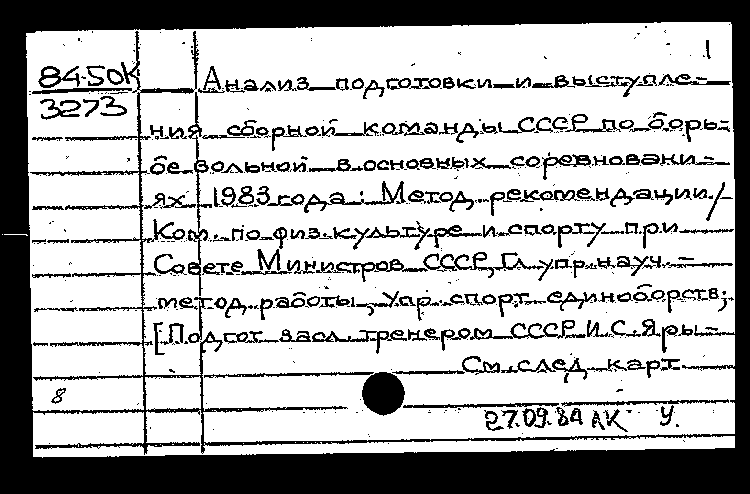 1
84-50К Анализ подготовки и выступле-
3273
ния сборной команды СССР по борь-
бе вольной в основных соревновани-
ях 1983 года : Метод. рекомендации /
Ком. по физ. культуре и спорту при
Совете Министров СССР, Гл. упр. науч.-
метод. работы, Упр. спорт. единоборств;
[Подгот. засл. тренером СССР И.С. Яры-
См. след. карт.
8
27.09.84 ЛК У.